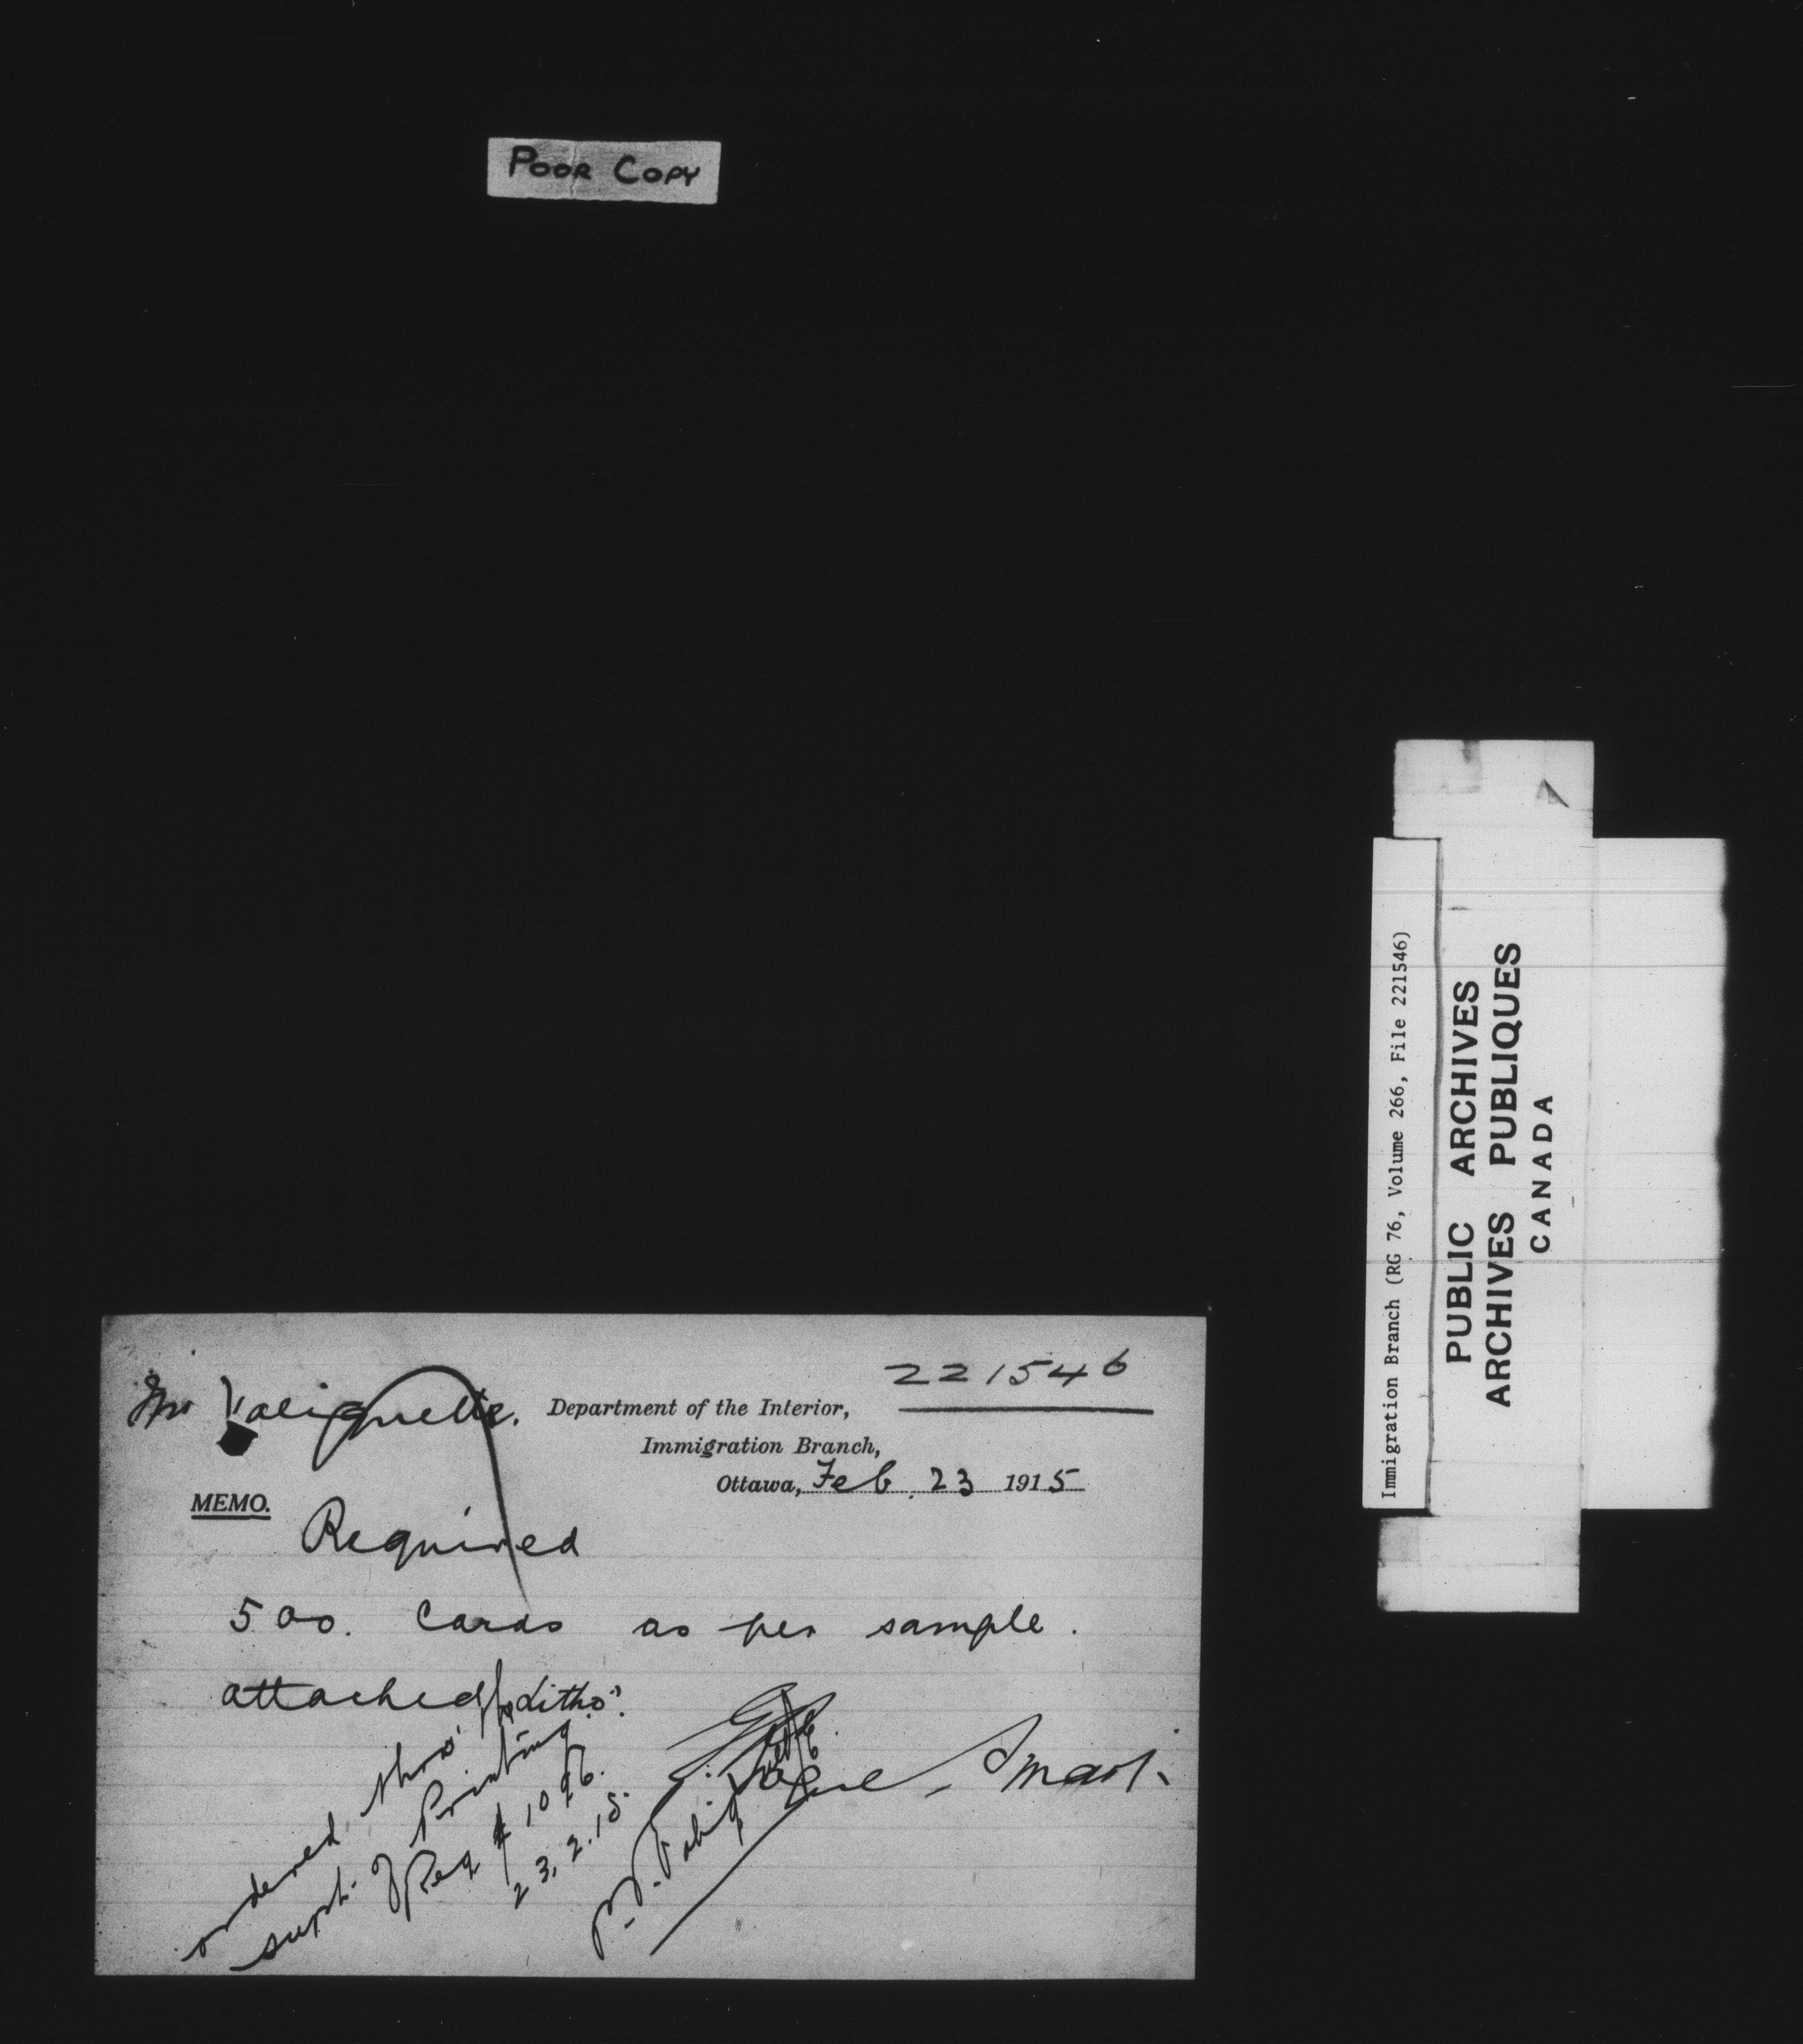 POOR COPY
221546
Mr Valiquette.
Department of the Interior,
Immigration Branch,
Ottawa, Feb. 23 1915
MEMO.
Required
500. Cards as per sample.
attached "Litho".
Smart.
ordered thro'
supt. of Printing
Req # 1096.
23.2.15.
P.V. Valiquette
Immigration Branch (RG 76, Volume 266, File 221546)
PUBLIC ARCHIVES
ARCHIVES PUBLIQUES
CANADA